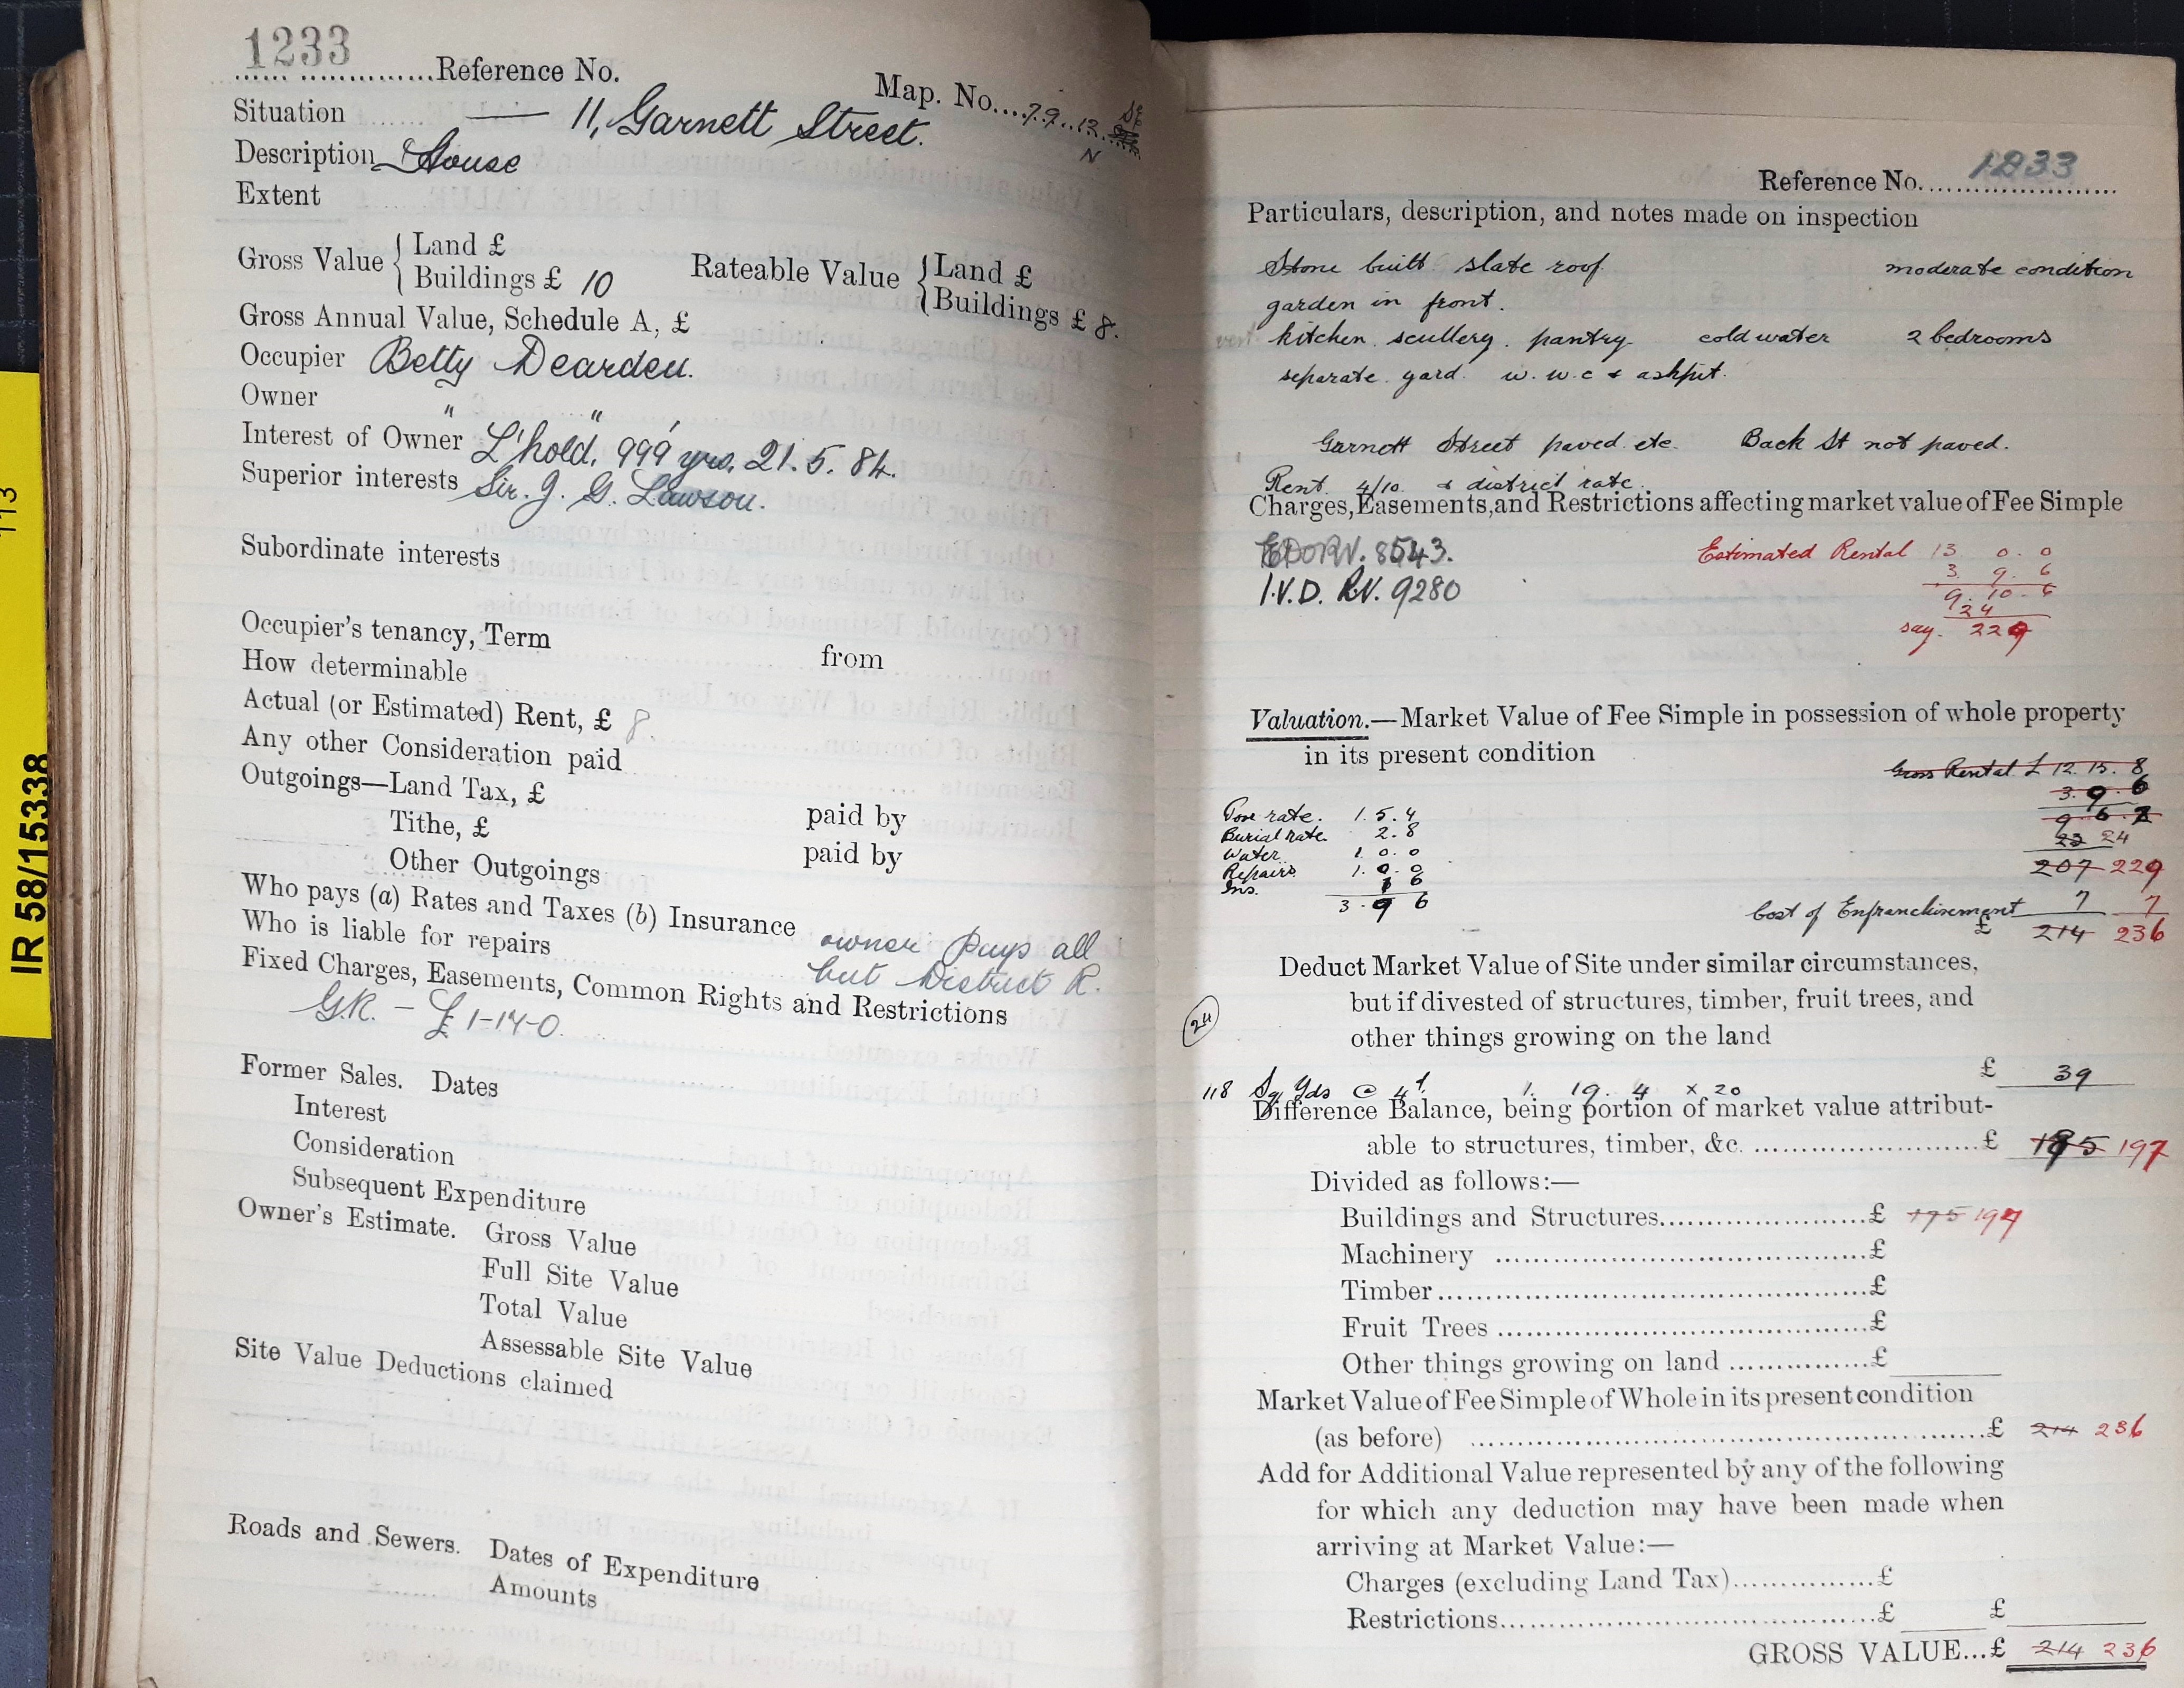 IR 58/15338
113
1233
Reference No.
Map. No. 79. 12.
N
Situation — 11, Garnett Street.
Description House
Extent
Gross Value { Land £
Buildings £ 10
Rateable Value { Land £
Buildings £ 8.
Gross Annual Value, Schedule A, £
Occupier Betty Dearden.
Owner " "
Interest of Owner L'hold, 999 yrs, 21. 5. 84.
Superior interests Sir. J. G. Lawson.
Subordinate interests
Occupier's tenancy, Term from
How determinable
Actual (or Estimated) Rent, £ 8.
Any other Consideration paid
Outgoings—Land Tax, £ paid by
Tithe, £ paid by
Other Outgoings
Who pays (a) Rates and Taxes (b) Insurance owner pays all
Who is liable for repairs but District R.
Fixed Charges, Easements, Common Rights and Restrictions
G.R. — £1-14-0.
Former Sales. Dates
Interest
Consideration
Subsequent Expenditure
Owner's Estimate. Gross Value
Full Site Value
Total Value
Assessable Site Value
Site Value Deductions claimed
Roads and Sewers. Dates of Expenditure
Amounts
Reference No. 1233
Particulars, description, and notes made on inspection
Stone built slate roof. moderate condition
garden in front.
kitchen scullery. pantry. cold water 2 bedrooms
separate yard. w. w.c & ashpit.
Garnett Street paved etc. Back St not paved.
Rent 4/10. & district rate.
Charges, Easements, and Restrictions affecting market value of Fee Simple
8543.
I.V.D. RV. 9280
Estimated Rental 13 0. 0
3. 9. 6
9. 10. 6
24
say. 229
Valuation.—Market Value of Fee Simple in possession of whole property
in its present condition
Gross Rental £ 12. 15. 8
3. 9. 6
9. 6. 2
22 24
207 229
Poor rate. 1. 5. 4
Burial rate. 2. 8
Water. 1. 0. 0
Repairs. 1. 0. 0
Ins. 1 6
3. 9 6
Cost of Enfranchisement 7 7
£ 214 236
Deduct Market Value of Site under similar circumstances,
but if divested of structures, timber, fruit trees, and
other things growing on the land
24
£ 39
118 Sq Yds @ 4d. 1. 19. 4 x 20
Difference Balance, being portion of market value attribut-
able to structures, timber, &c. £ 175 197
Divided as follows:—
Buildings and Structures £ 175 197
Machinery £
Timber £
Fruit Trees £
Other things growing on land £
Market Value of Fee Simple of Whole in its present condition
(as before) £ 214 236
Add for Additional Value represented by any of the following
for which any deduction may have been made when
arriving at Market Value:—
Charges (excluding Land Tax) £
Restrictions £ £
GROSS VALUE... £ 214 236